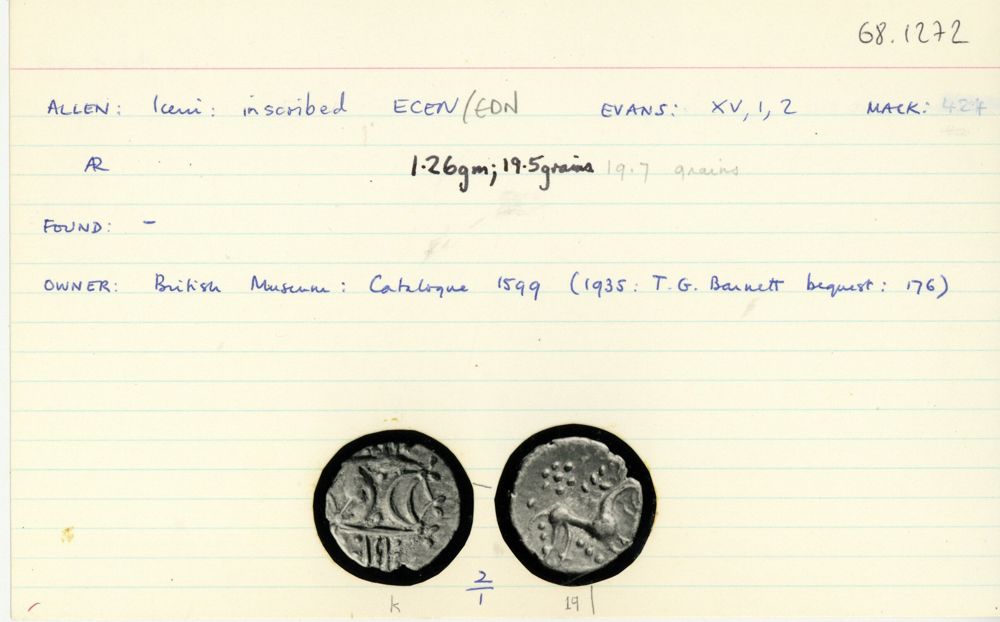 68.1272
ALLEN: Iceni: inscribed ECEN/EDN EVANS: XV, 1, 2 MACK: 424
AR 1.26gm; 19.5grains 19.7 grains
FOUND: -
OWNER: British Museum: Catalogue 1599 (1935: T.G. Barnett bequest: 176)
2/1
k 19